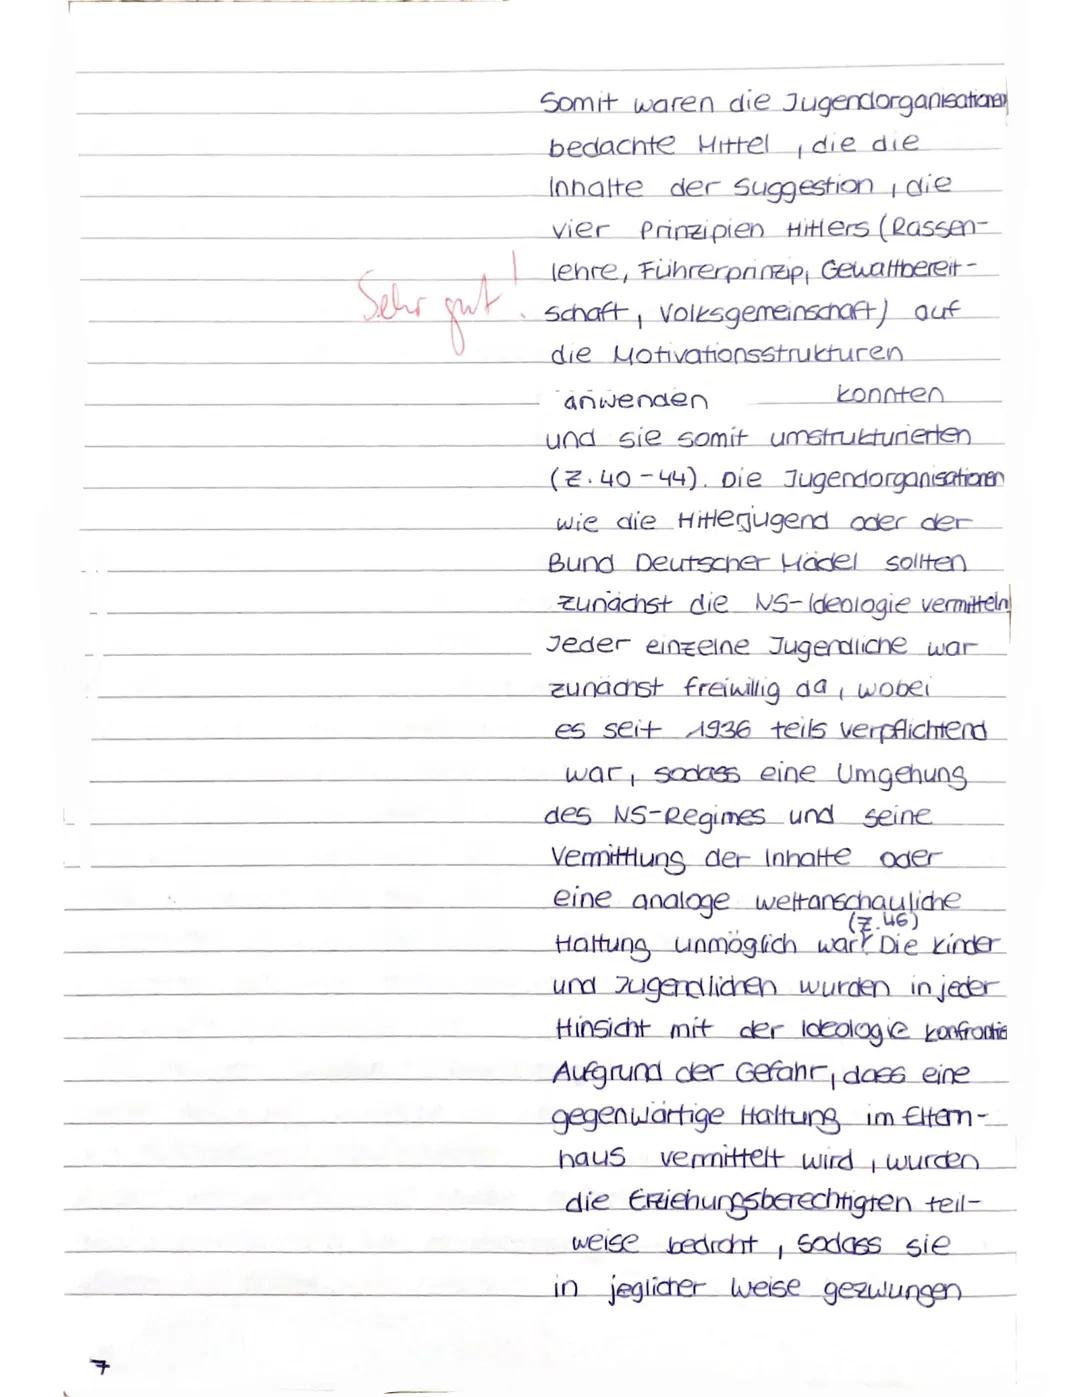 Somit waren die Jugendorganisationen
bedachte Mittel, die die
Inhalte der Suggestion, die
vier Prinzipien Hitlers (Rassen-
lehre, Führerprinzip, Gewaltbereit-
Sehr gut!
schaft, Volksgemeinschaft) auf
die Motivationsstrukturen
anwenden konnten
und sie somit umstrukturierten
(Z. 40-44). Die Jugendorganisationen
wie die Hitlerjugend oder der
Bund Deutscher Mädel sollten
zunächst die NS-Ideologie vermitteln
Jeder einzelne Jugendliche war
zunächst freiwillig da, wobei
es seit 1936 teils verpflichtend
war, sodass eine Umgehung
des NS-Regimes und seine
Vermittlung der Inhalte oder
eine analoge weltanschauliche
(Z. 46)
Haltung unmöglich war. Die Kinder
und Jugendlichen wurden in jeder
Hinsicht mit der Ideologie konfrontie
Aufgrund der Gefahr, dass eine
gegenwärtige Haltung im Eltern-
haus vermittelt wird, wurden
die Erziehungsberechtigten teil-
weise bedroht, sodass sie
in jeglicher Weise gezwungen
7